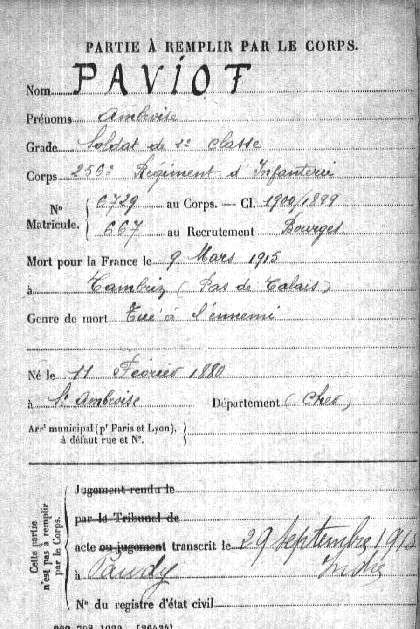 PARTIE À REMPLIR PAR LE CORPS.
Nom PAVIOT
Prénoms Ambroise
Grade Soldat de 2e classe
Corps Régiment d'Infanterie
N° Matricule. 6729 au Corps. — Cl. 1900/1899
667 au Recrutement Bourges
Mort pour la France le 9 Mars 1915
à Cambrin (Pas de Calais)
Genre de mort Tué à l'ennemi
Né le 11 Février 1880
à St Ambroise Département (Cher)
Arrt municipal (pr Paris et Lyon), à défaut rue et N°.
Cette partie n'est pas à remplir par le Corps.
Jugement rendu le
par le Tribunal de
acte ou jugement transcrit le 29 Septembre
à Paudy Indre
N° du registre d'état civil